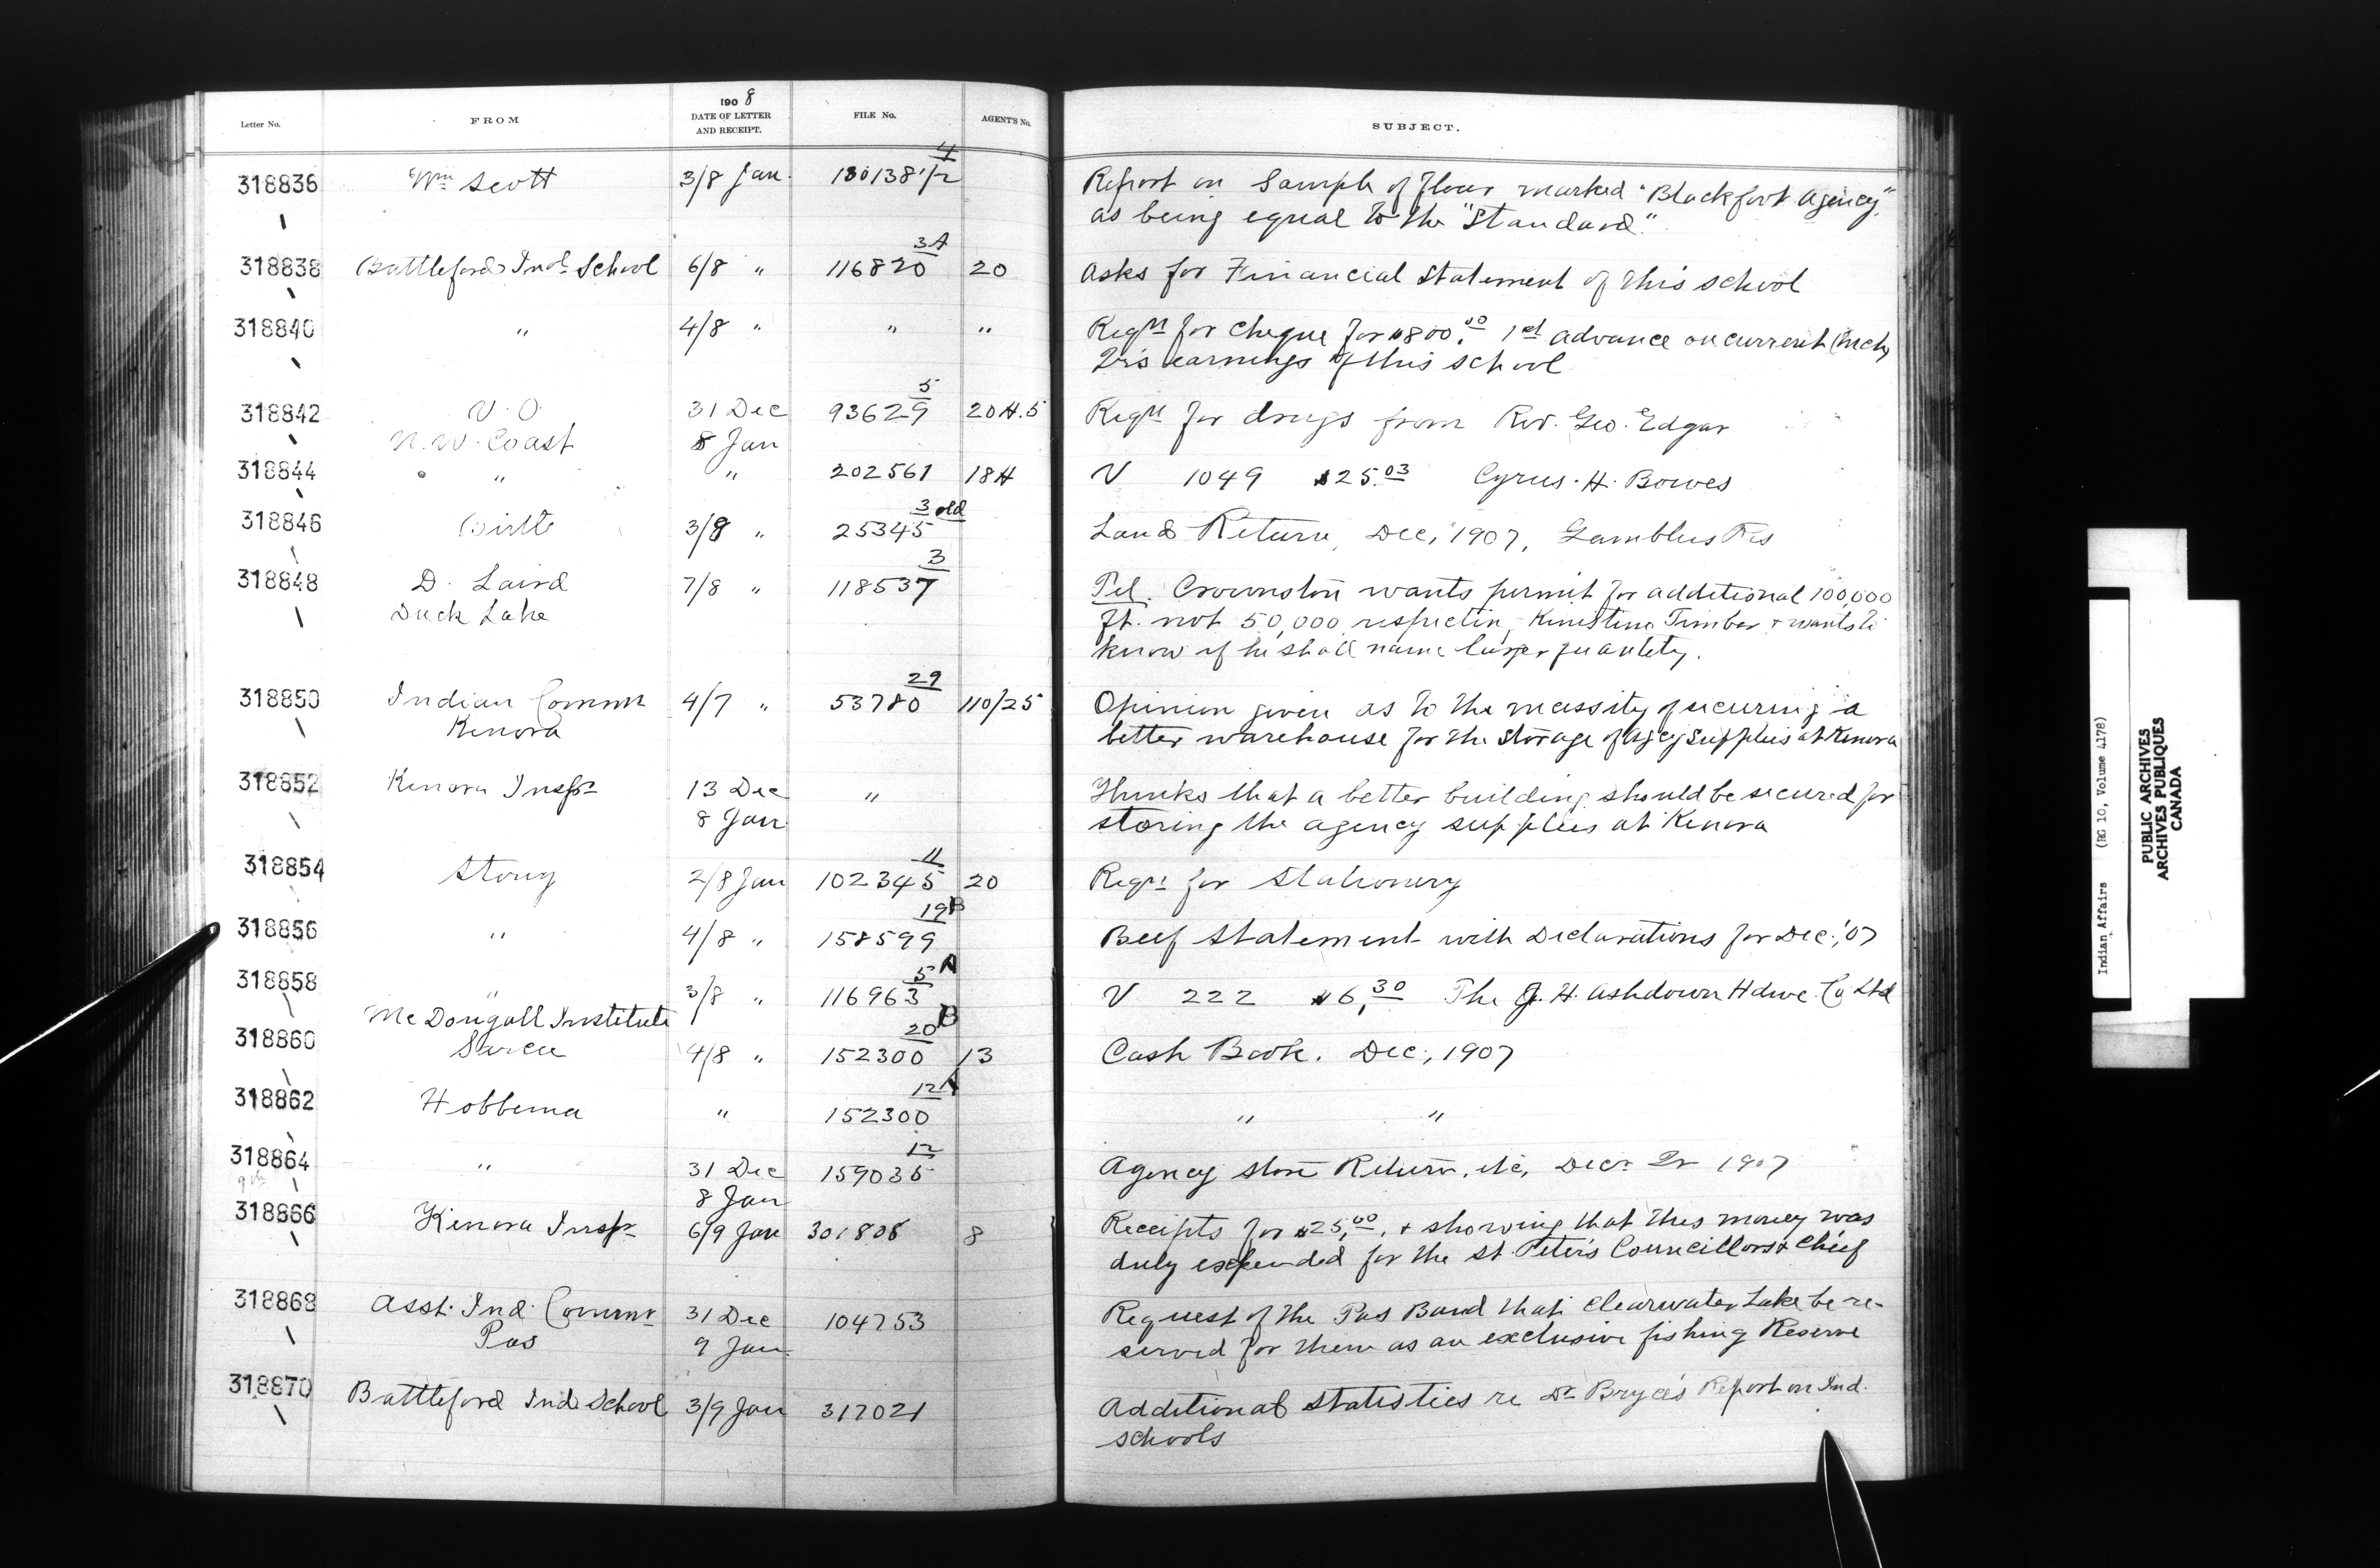 1908
Letter No. FROM DATE OF LETTER AND RECEIPT. FILE No. AGENT'S No. SUBJECT.
318836 Wm Scott 3/8 Jan. 130138-1/2 4 Report on Sample of flour marked "Blackfoot Agency"
as being equal to the "Standard"
318838 Battleford Indl School 6/8 " 116820 3A 20 Asks for Financial Statement of this school
318840 " 4/8 " " " Reqn for cheque for $800.00 1st advance on current (Mch)
Qr's earnings of this school
318842 V.O. 31 Dec 93629 5 20H.5 Reqn for drugs from Rev. Geo. Edgar
N.W. Coast 8 Jan
318844 " " 202561 18H V 1049 $25.03 Cyrus. H. Bowes
318846 Birtle 3/8 " 25345 3 old Land Return, Dec, 1907, Gamblers Res
318848 D. Laird 7/8 " 118537 3 Tel. Crownston wants permit for additional 100,000
Duck Lake ft. not 50,000 respecting Kinistino Timber & wants to
know if he shall name larger quantity.
318850 Indian Commr 4/7 " 53780 29 110/25 Opinion given as to the necessity of securing a
Kenora better warehouse for the storage of agcy supplies at Kenora
318852 Kenora Inspr 13 Dec " Thinks that a better building should be secured for
8 Jan storing the agency supplies at Kenora
318854 Stony 2/8 Jan 102345 11 20 Reqn for Stationery
318856 " 4/8 " 158599 19B Beef Statement with Declarations for Dec., '07
318858 " 3/8 " 116963 5A V 222 $6.30 The J. H. Ashdown Hdwe. Co Ltd
McDougall Institute
318860 Sarcee 4/8 " 152300 20B 13 Cash Book. Dec., 1907
318862 Hobbema " 152300 12A " "
318864 " 31 Dec 159035 12 Agency store Return, etc, Decr Qr 1907
9th 8 Jan
318866 Kenora Inspr 6/9 Jan 301808 8 Receipts for $25.00, & showing that this money was
duly expended for the St Peter's Councillors & Chief
318868 Asst. Ind. Commr 31 Dec 104753 Request of the Pas Band that Clearwater Lake be re-
Pas 9 Jan served for them as an exclusive fishing Reserve
318870 Battleford Ind School 3/9 Jan 317021 Additional statistics re Dr Bryce's Report on Ind.
schools
Indian Affairs (RG 10, Volume 4178)
PUBLIC ARCHIVES
ARCHIVES PUBLIQUES
CANADA